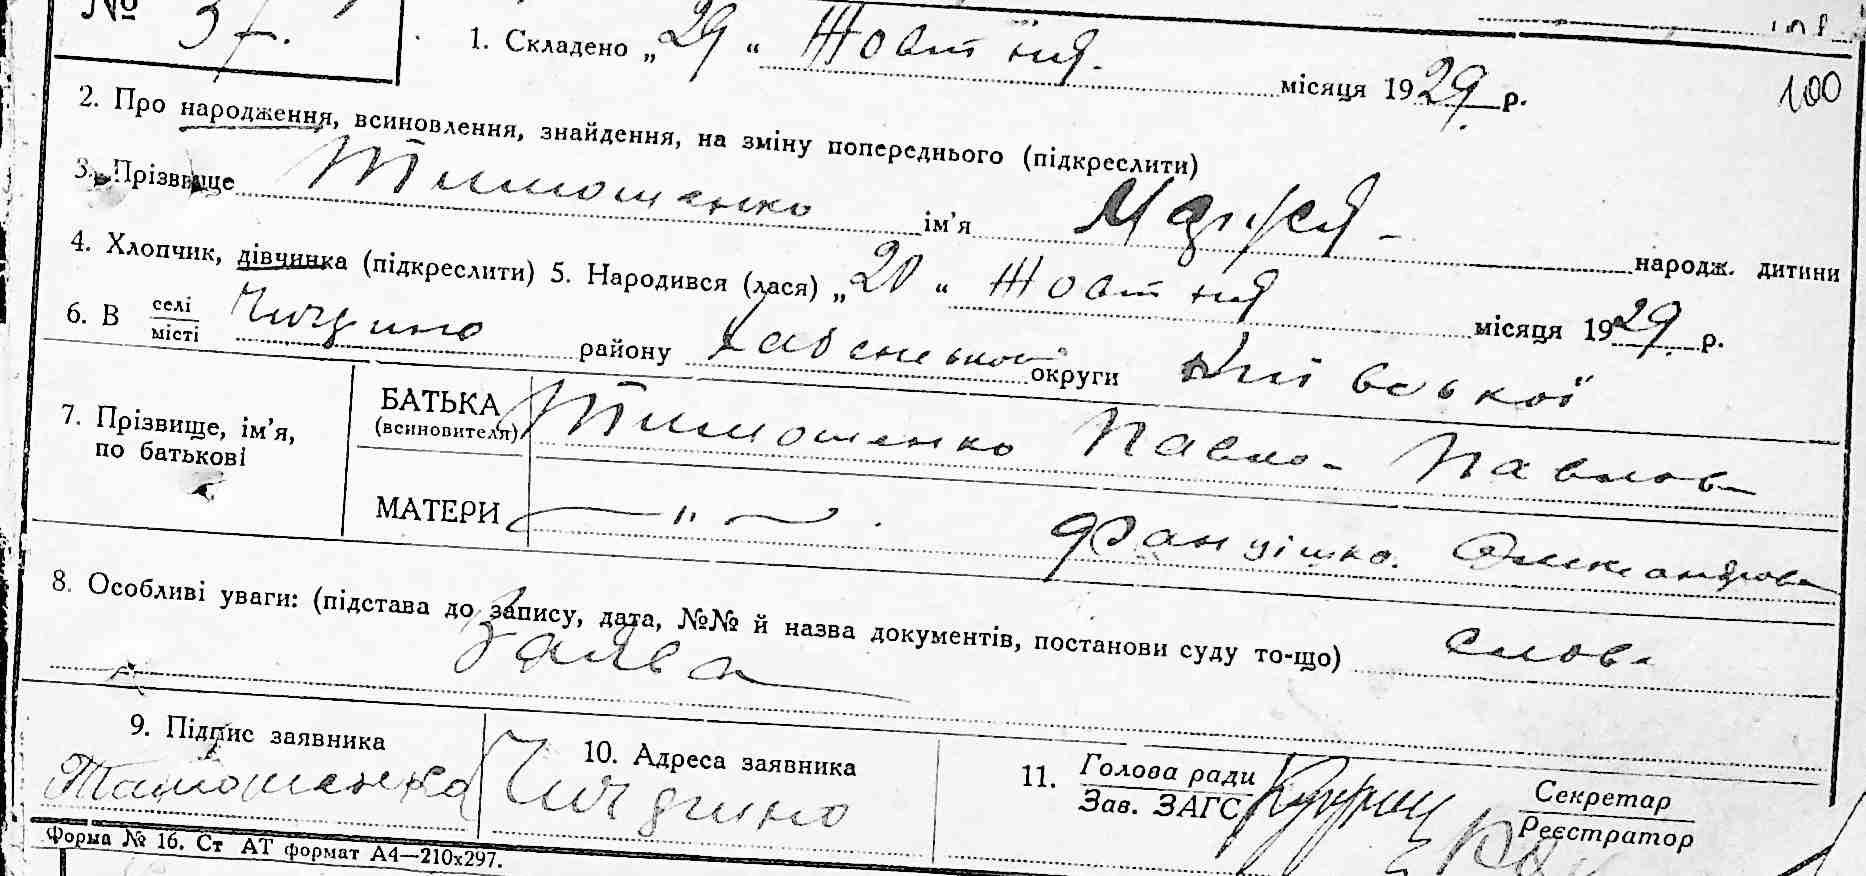 № 37.
1. Складено „29“ Жовтня місяця 1929 р. 100
2. Про народження, всиновлення, знайдення, на зміну попереднього (підкреслити)
3. Прізвище Тимошенко ім’я Марія народж. дитини
4. Хлопчик, дівчинка (підкреслити) 5. Народився (лася) „20“ Жовтня місяця 1929 р.
6. В селі/місті району округи Київської
7. Прізвище, ім’я, по батькові
БАТЬКА (всиновителя) Тимошенко Павло Павлов
МАТЕРИ —„— Францішка Олександров
8. Особливі уваги: (підстава до запису, дата, №№ й назва документів, постанови суду то-що)
Заява
9. Підпис заявника 10. Адреса заявника 11. Голова ради/Зав. ЗАГС Секретар/Реєстратор
Тимошенко
Форма № 16. Ст АТ формат А4—210х297.